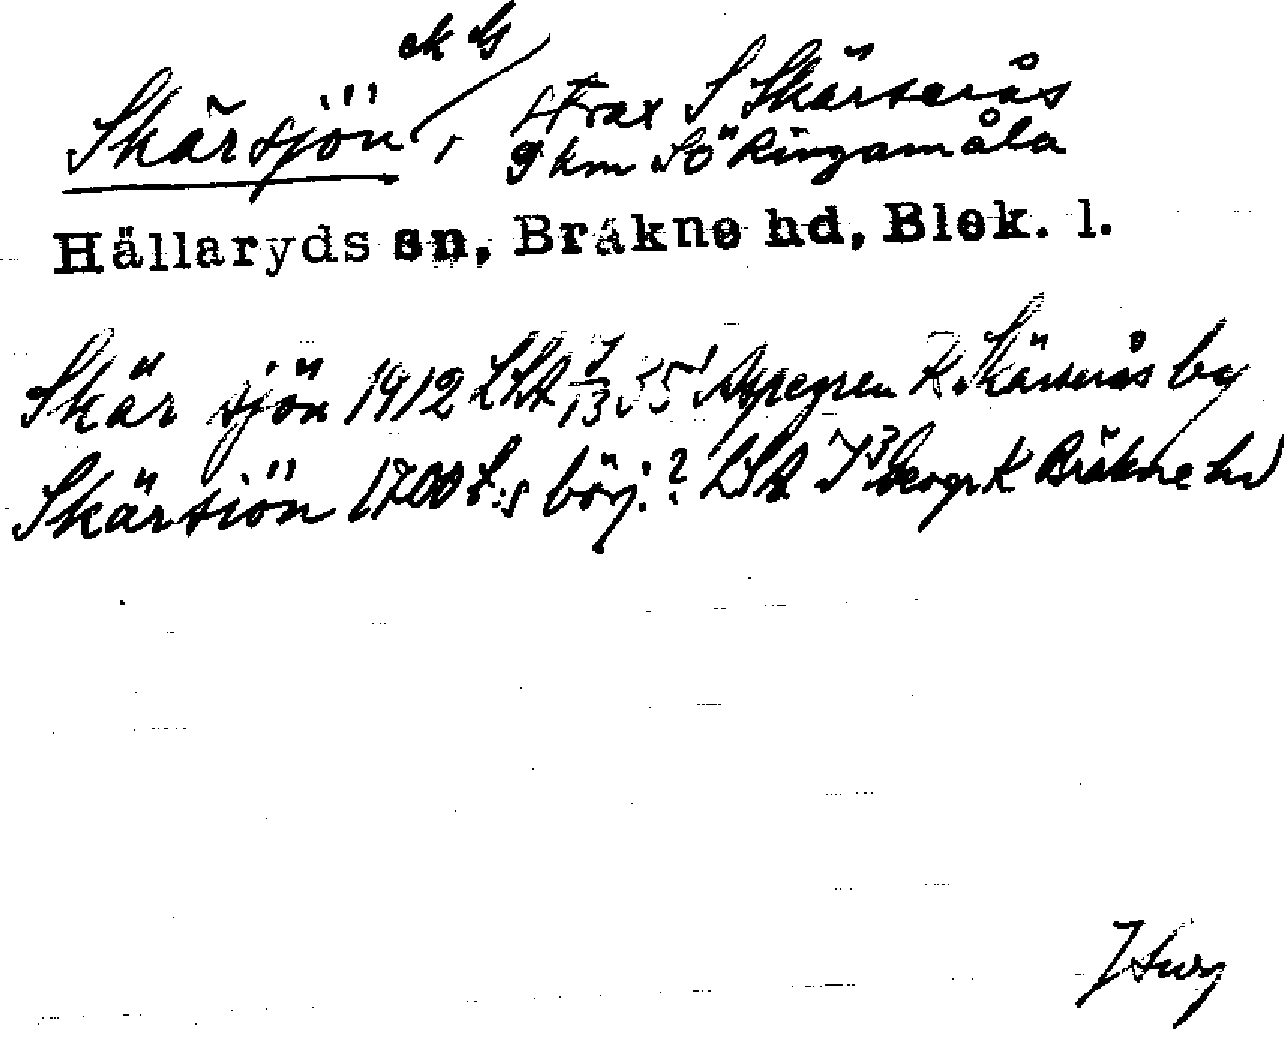 ek G
Skärsjön, Strax S Skärserås
9 km SÖ Ringamåla
Hällaryds sn, Bräkne hd, Blek. l.
Skär sjön 1912 LSA 7/13 55 Appegren K Skärserås by
Skärsiön 1700 t:s börj.? LSA Geogr K Bräkne hd